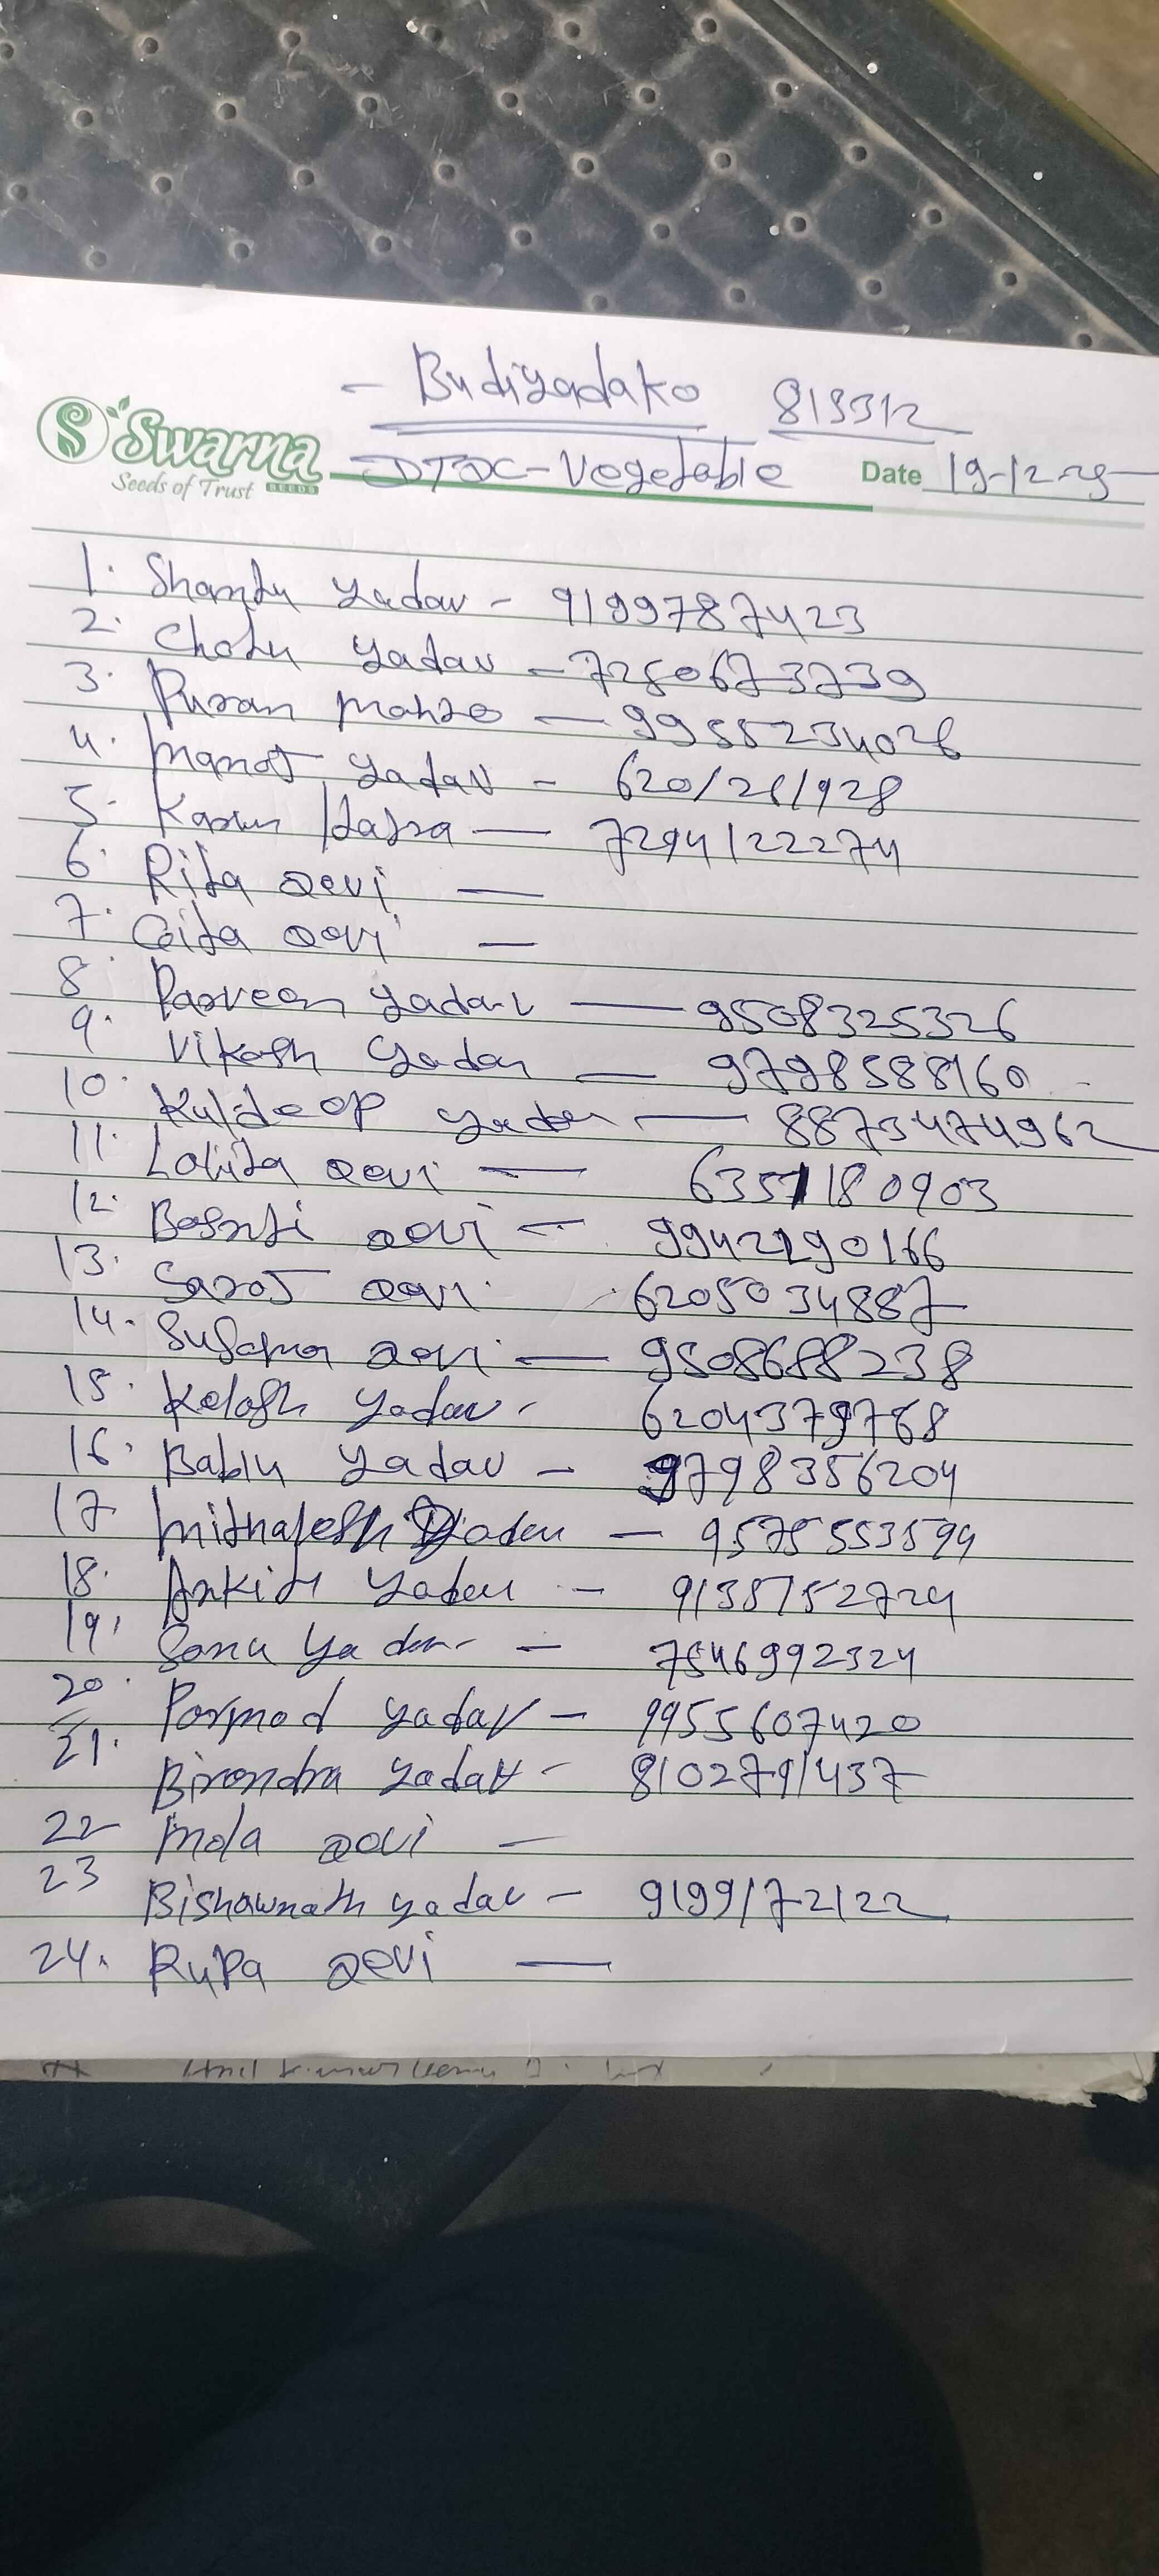 - Budiyadako 813312
Swarna
Seeds of Trust SEEDS
DTDC-Vegetable Date 19-12-25
1. Shantu Yadav - 9199787423
2. Chotu Yadav - 7250673739
3. Puran mahto - 9955234026
4. Manoj Yadav - 620/261928
5. Karun Hajra - 7294122274
6. Rita Devi -
7. Geita Devi -
8. Parveen Yadav - 9508325326
9. Vikash Yadav - 9798588160
10. Kuldeep Yadav - 8873474962
11. Lalita Devi - 6357180903
12. Basnti Devi - 9942290166
13. Saroj Devi - 6205034887
14. Devi - 9508688238
15. Kelash Yadav - 6204379768
16. Bablu Yadav - 9798356204
17. Mithalesh Yadav - 9575553594
18. Ankit Yadav - 9135752724
19. Sonu Yadav - 7546992324
20. Parmod Yadav - 9955607420
21. Birendra Yadav - 8102791437
22 Devi -
23 Bishawnath Yadav - 9199172122
24. Rupa Devi -